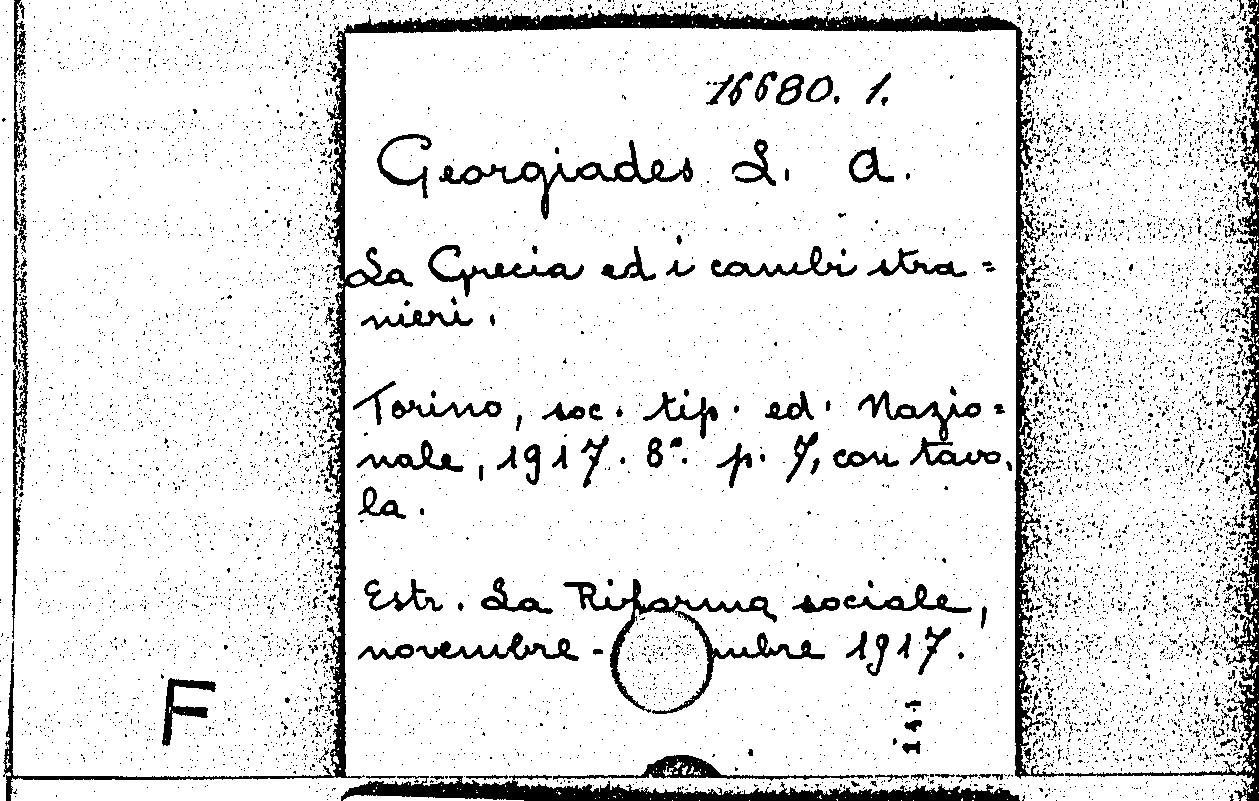 16680. 1.
Georgiades L. A.
La Grecia ed i cambi stra=
nieri.
Torino, soc. tip. ed. Nazio=
nale, 1917. 8°. p. 7, con tavo.
la.
Estr. La Riforma sociale,
novembre - mbre 1917.
F
141